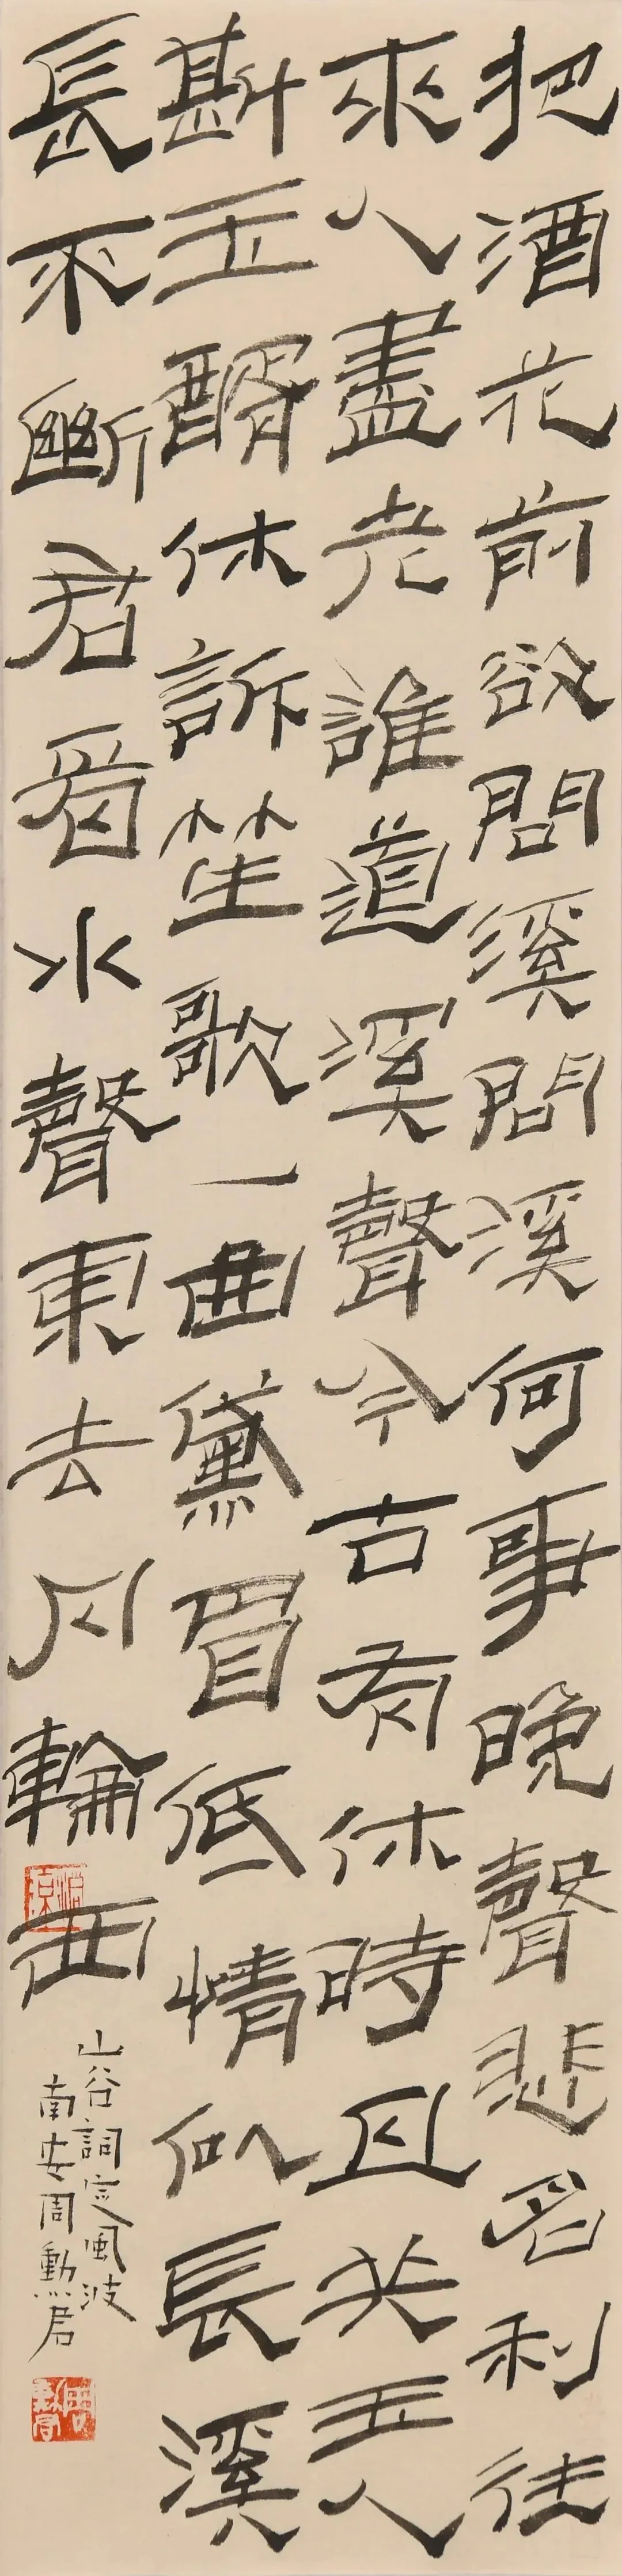 把酒花前欲問溪問溪何事晚聲悲名利往
來人盡老誰道溪聲今古有休時且共玉人
斟玉醑休訴笙歌一曲黛眉低情似長溪
長不斷君看水聲東去月輪西
山谷詞定風波
南安周勳君